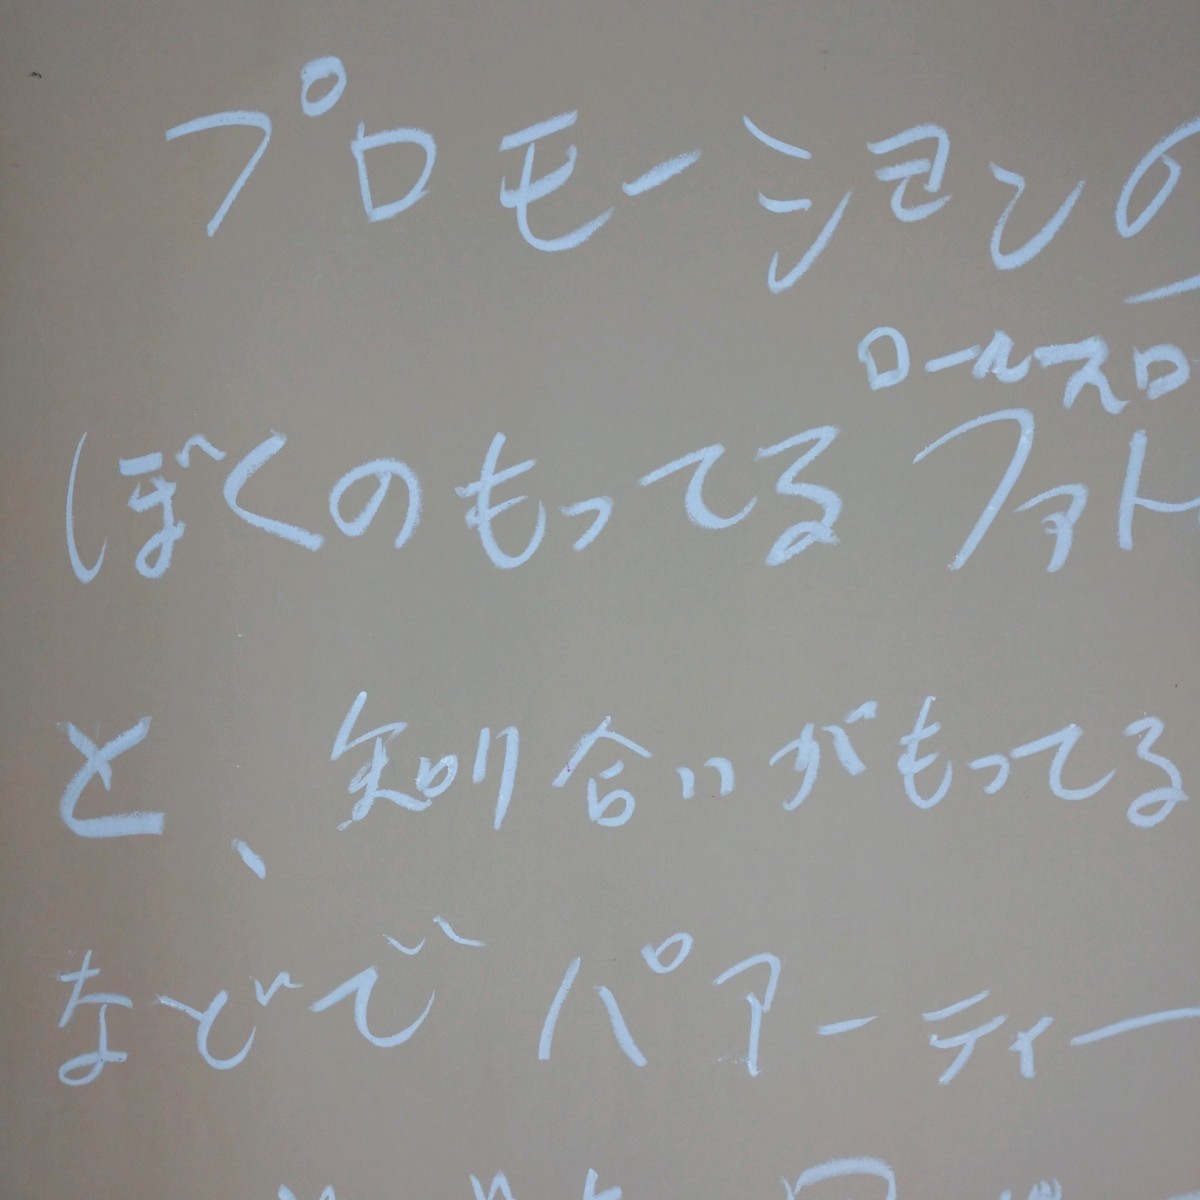 プロモーションの
ロールスロ
ぼくのもってるファト
と、知り合いがもってる
などでパアーティー